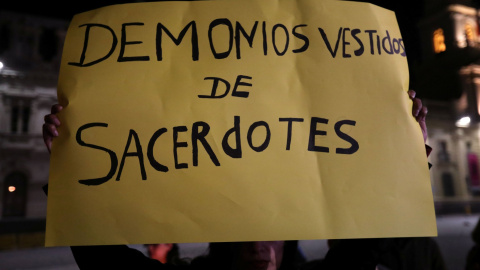 DEMONIOS VESTIDOS
DE
SACERDOTES